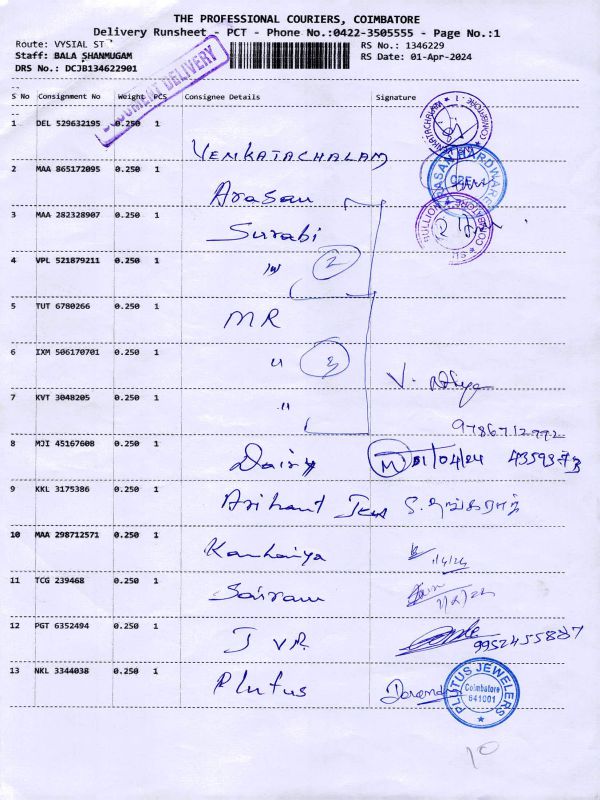 THE PROFESSIONAL COURIERS, COIMBATORE
Delivery Runsheet - PCT - Phone No.:0422-3505555 - Page No.:1
Route: VYSIAL ST
RS No.: 1346229
Staff: BALA SHANMUGAM
RS Date: 01-Apr-2024
DRS No.: DCJB134622901
DOCUMENT DELIVERY
S No Consignment No Weight PCS Consignee Details Signature
1 DEL 529632195 0.250 1 VENKATACHALAM
2 MAA 865172095 0.250 1 Arasan
3 MAA 282328907 0.250 1 Surabi
4 VPL 521879211 0.250 1 " 2
5 TUT 6780266 0.250 1 MR
6 IXM 506170701 0.250 1 " 3
7 KVT 3048205 0.250 1 "
9786712992
8 MJI 45167608 0.250 1 Dairy M 01/04/24
9 KKL 3175386 0.250 1 Arihant Jews S. தங்கராத்
10 MAA 298712571 0.250 1 Kanhaiya 1/4/24
11 TCG 239468 0.250 1 Sairam
12 PGT 6352494 0.250 1 J VR 9952455887
13 NKL 3344038 0.250 1 Plutus
PLUTUS JEWELERS
Coimbatore
641001
10